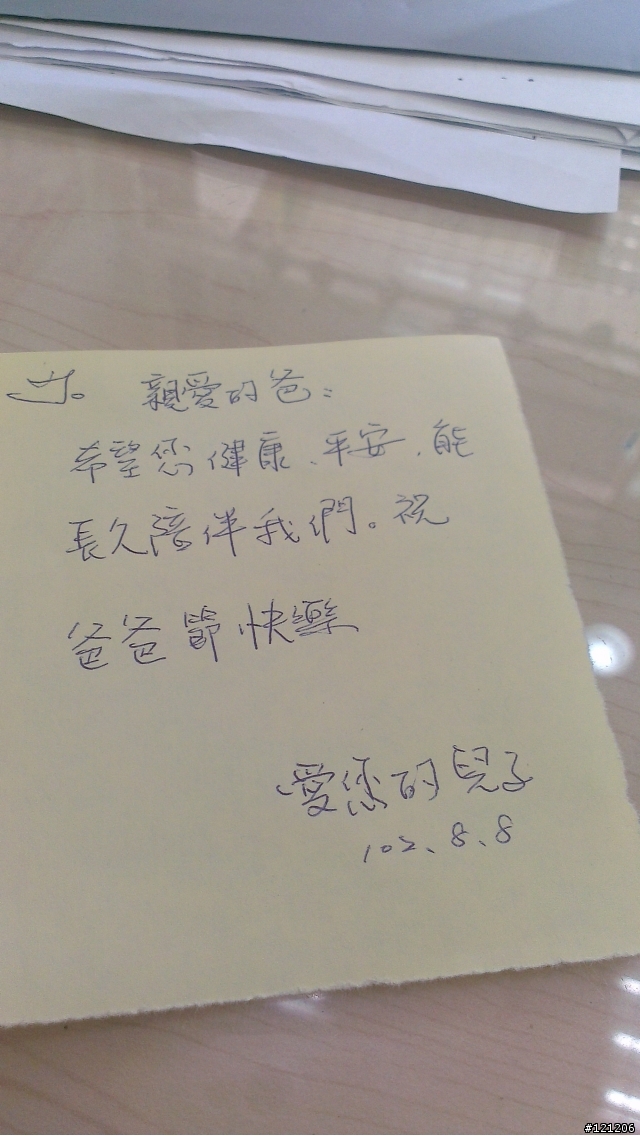 親愛的爸：
希望您健康、平安、能
長久陪伴我們。祝
爸爸節快樂
愛您的兒子
102.8.8
#121206